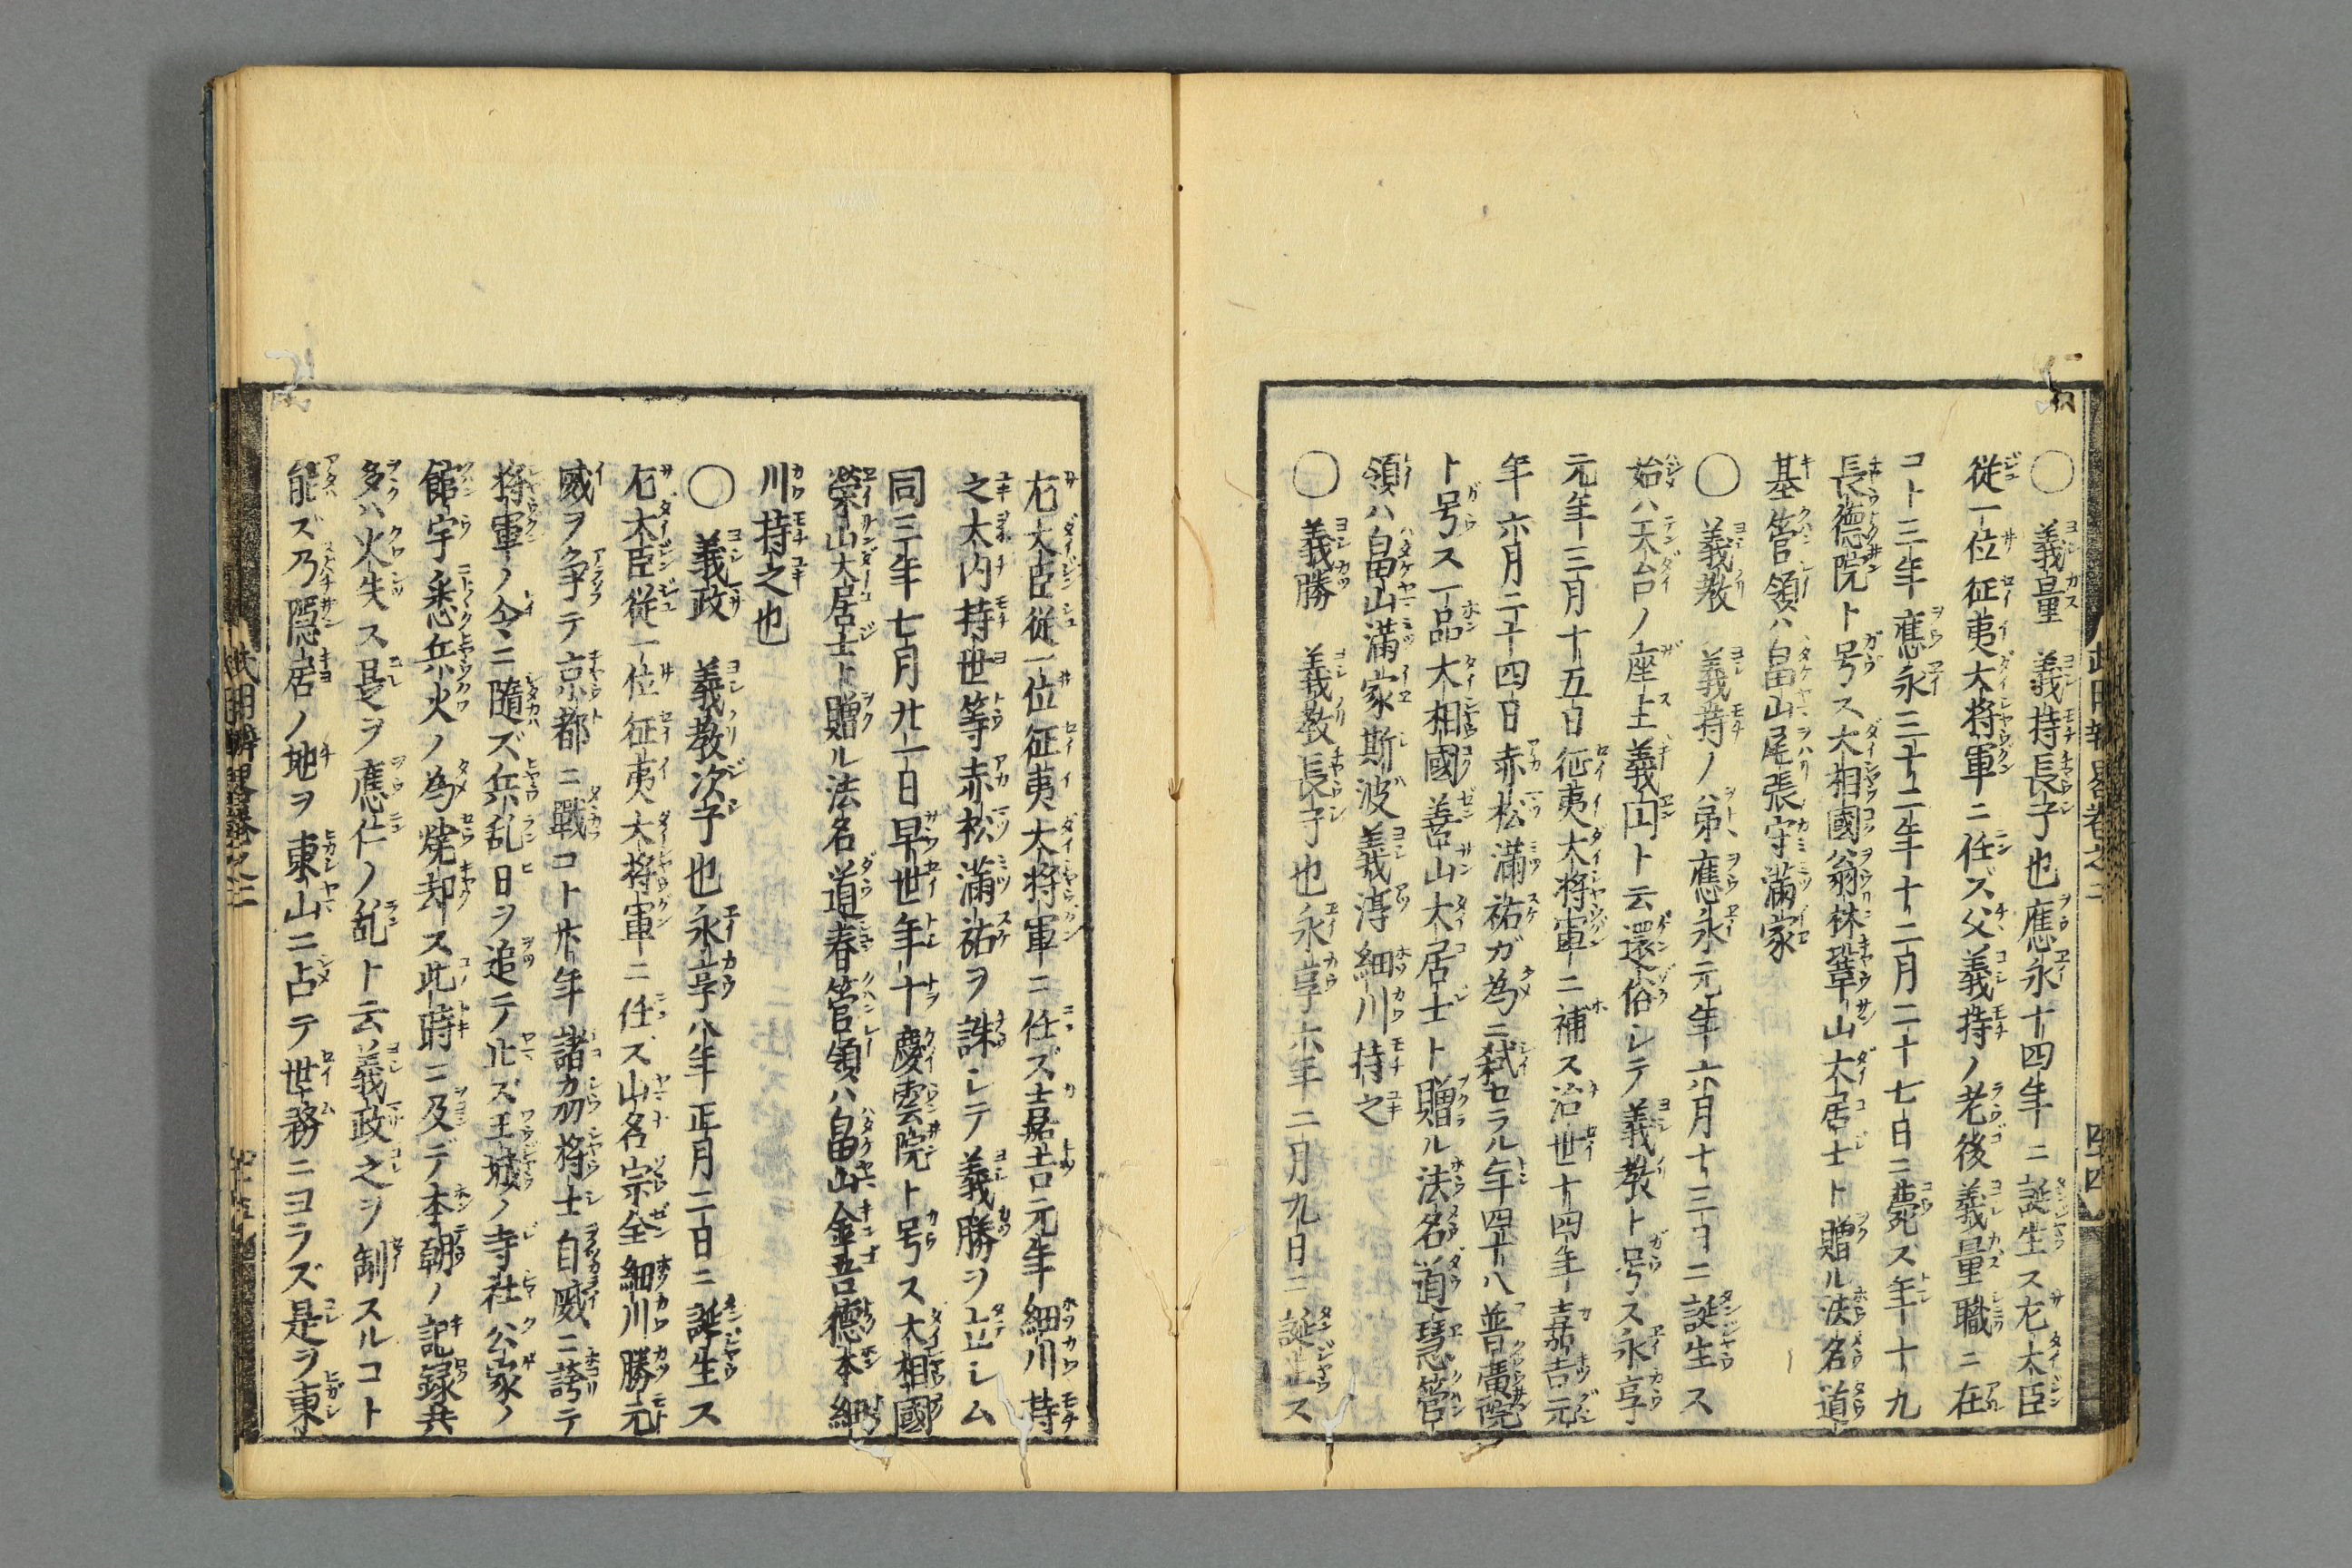 〇 義量 義持長子也應永十四年ニ誕生ス左大臣
従一位征夷大将軍ニ任ズ父義持ノ老後義量職ニ在
コト三年應永三十二年十二月二十七日ニ薨ズ年十九
長徳院ト号ス大相國翁林鞏山大居士ト贈ル法名道
基管領ハ畠山尾張守滿家
〇 義教 義持ノ弟應永元年六月十三日ニ誕生ス
始ハ天台ノ座主義円ト云還俗レテ義教ト号ス永享
元年三月十五日征夷大将軍ニ補ス治世十四年嘉吉元
年六月二十四日赤松滿祐ガ為ニ弑セラル年四十八普廣院
ト号ス一品大相國善山大居士ト贈ル法名道慧管
領ハ畠山滿家斯波義淳細川持之
〇 義勝 義教長子也永享六年二月九日ニ誕生ス
左大臣従一位征夷大将軍ニ任ズ嘉吉元年細川持
之大内持世等赤松滿祐ヲ誅レテ義勝ヲ立レム
同三年七月廿一日早世年十慶雲院ト号ス大相國
榮山大居士ト贈ル法名道春管領ハ畠山金吾德本細
川持之也
〇 義政 義教次子也永享八年正月二日ニ誕生ス
右大臣従一位征夷大将軍ニ任ズ山名宗全細川勝元
威ヲ争テ京都ニ戰コト廿年諸刕将士自威ニ誇テ
将軍ノ令ニ隨ズ兵乱日ヲ追テ止ズ王城ノ寺社公家ノ
館宇悉兵火ノ為焼却ス此時ニ及デ本朝ノ記録共
多ハ火失ス是ヲ應仁ノ乱ト云義政之ヲ制スルコト
能ズ乃隠居ノ地ヲ東山ニ占テ世務ニヨラズ是ヲ東